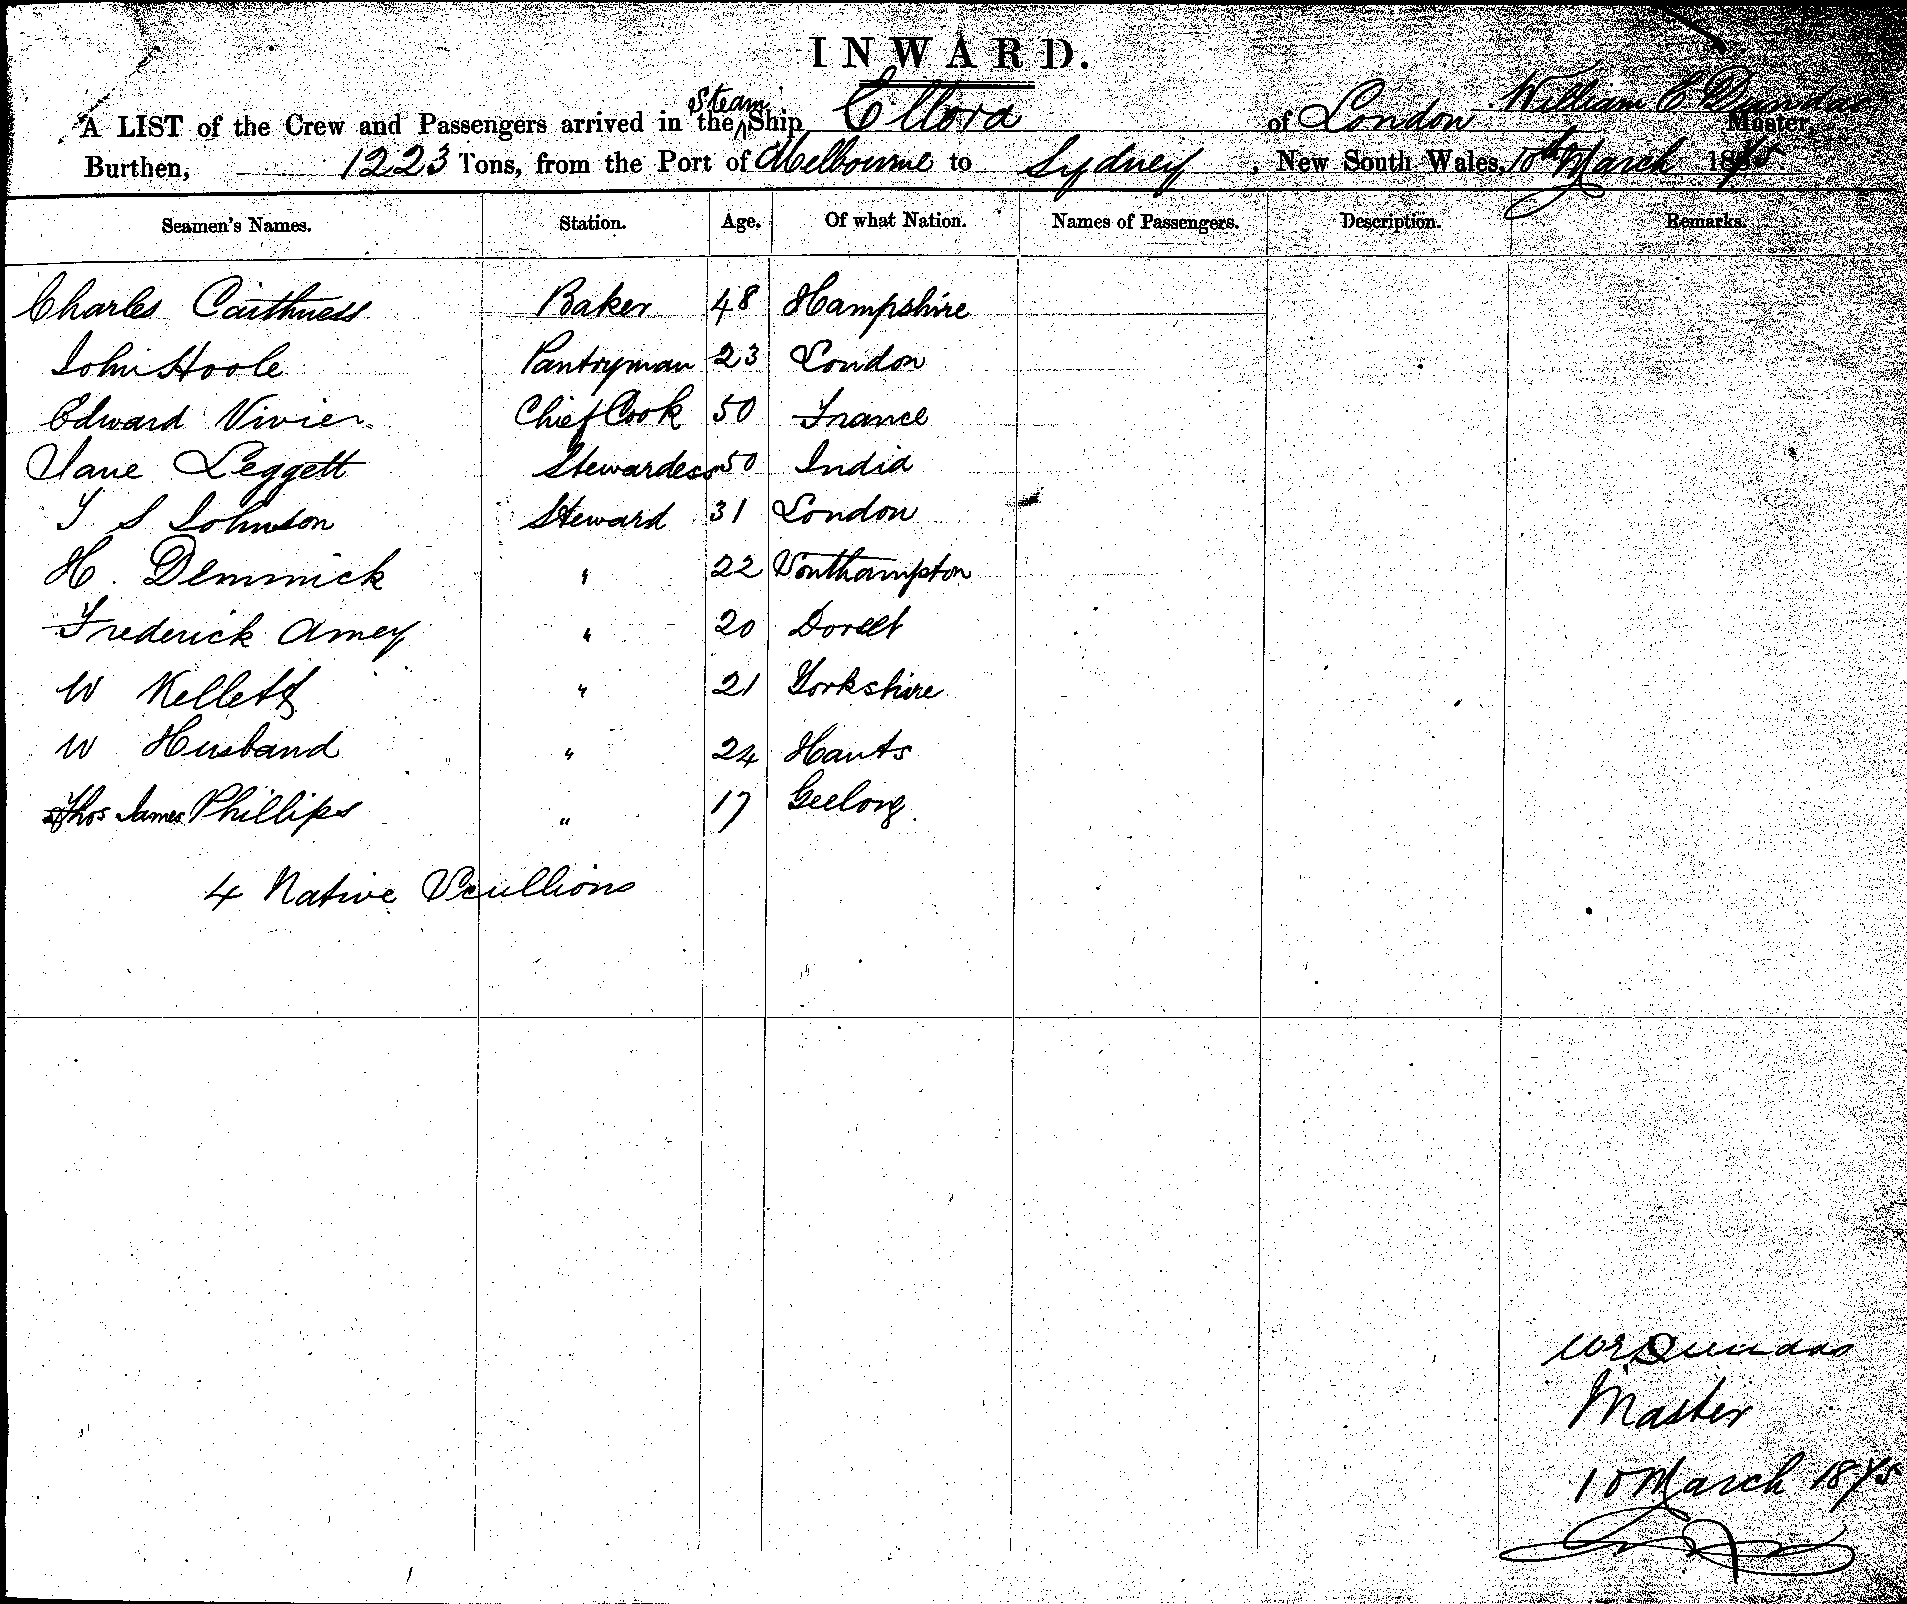 INWARD.
A LIST of the Crew and Passengers arrived in the Steam Ship Ellora of London William C Dundas Master,
Burthen, 1223 Tons, from the Port of Melbourne to Sydney, New South Wales, 10th March 1875.
Seamen's Names. Station. Age. Of what Nation. Names of Passengers. Description. Remarks.
Charles Caithness Baker 48 Hampshire
John Hoole Pantryman 23 London
Edward Vivier Chief Cook 50 France
Jane Leggett Stewardess 50 India
T S Johnson Steward 31 London
H. Demmick " 22 Southampton
Frederick Amey " 20 Dorset
W Kellett " 21 Yorkshire
W Husband " 24 Hants
Thos James Phillips " 17 Geelong.
4 Native Scullions
Dundas
Master
10 March 1875